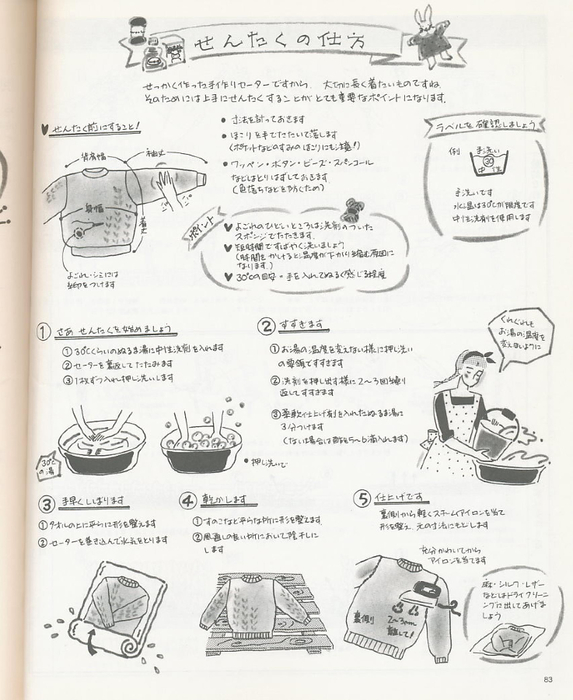 せんたくの仕方
せっかく作った手作りセーターですから、大切に長く着たいものですね。
そのためには上手にせんたくすることがとても重要なポイントになります。
せんたく前にすること!
背肩幅
袖丈
身幅
着丈
よごれ・シミには
糸印をつけます
● 寸法を計っておきます
● ほこりを手でたたいて落します
(ポケットなどのすみのほこりにも注意!)
● ワッペン・ボタン・ビーズ・スパンコール
などはとりはずしておきます
(色落ちなどを防ぐため)
ポイント
よごれのひどいところは洗剤のついた
スポンジでたたきます。
短時間ですばやく洗いましょう
(時間をかけると温度が下がり縮む原因に
なります。)
30℃の目安=手を入れてぬるく感じる程度
ラベルを確認しましょう
例
手洗い
30
中性
手洗いです
水温は30℃が限度です
中性洗剤を使用します
① さあ せんたくを始めましょう
① 30℃くらいのぬるま湯に中性洗剤を入れます
② セーターを裏返してたたみます
③ 1枚ずつ入れ押し洗いします
30℃の湯
● 押し洗いで
② すすぎます
① お湯の温度を変えない様に押し洗い
の要領ですすぎます
② 洗剤を押し出す様に2〜3回繰り
返してすすぎます
③ 柔軟仕上げ剤を入れたぬるま湯に
3分つけます
(ない場合は酢を5〜6滴入れます)
くれぐれも
お湯の温度を
変えぬように
③ 手早くしぼります
① タオルの上に平らに形を整えます
② セーターを巻き込んで水気をとります
④ 乾かします
① すのこなど平らな所に形を整えます
② 風通の良い所において陰干しに
します
⑤ 仕上げです
裏側から軽くスチームアイロンを当て
形を整え、元の寸法にもどします
充分かわいてから
アイロンを当てます
裏側
2〜3cm
離して!
シルク・レザー
などはドライクリーニ
ングに出してあげま
しょう
83